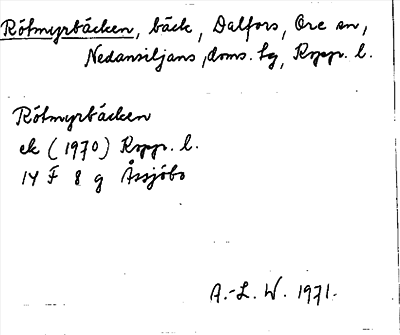 Rötmyrbäcken, bäck, Dalfors, Ore sn,
Nedansiljans doms. tg, Kopp. l.
Rötmyrbäcken
ek (1970) Kopp. l.
14 F 8 g Åssjöbo
A.-L. W. 1971.